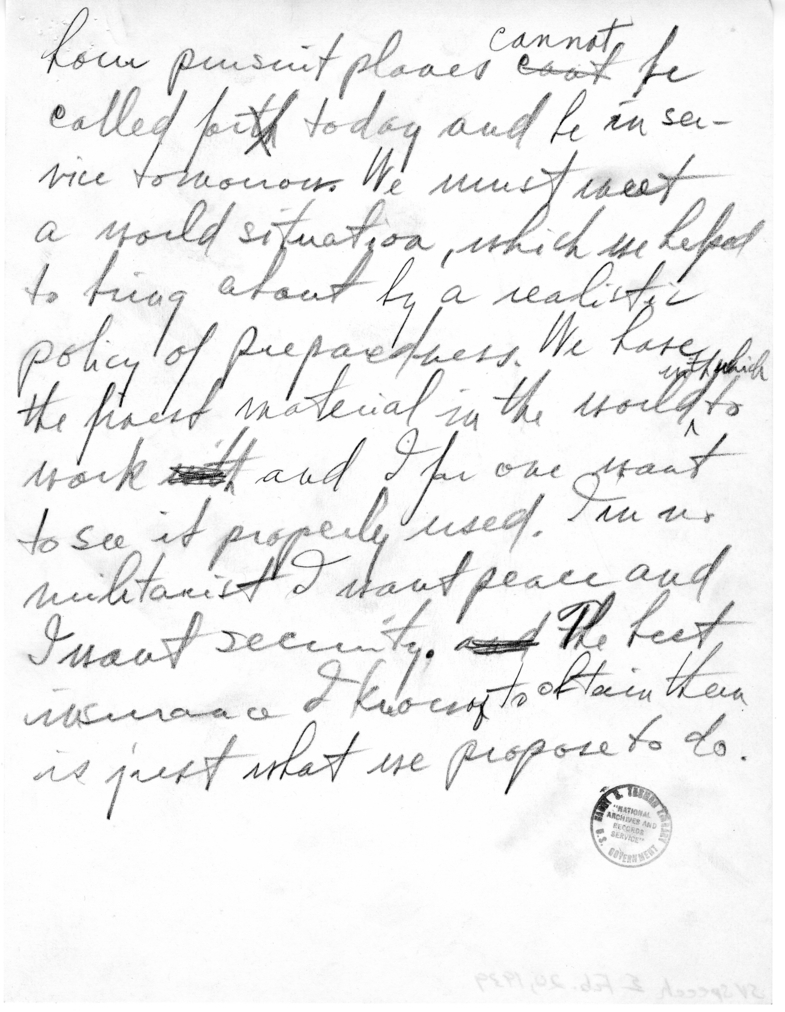 cannot
hour pursuit planes cant be
called forth today and be in ser-
vice tomorrow. We must meet
a world situation, which we helped
to bring about by a realistic
policy of preparedness. We have
with which
the finest material in the world ^ to
work with and I for one want
to see it properly used. I'm no
militarist I want peace and
I want security. and The best
insurance I know of to obtain them
is just what we propose to do.
HARRY S. TRUMAN LIBRARY
"NATIONAL
ARCHIVES AND
RECORDS
SERVICE"
U.S. GOVERNMENT
Feb. 20, 1939